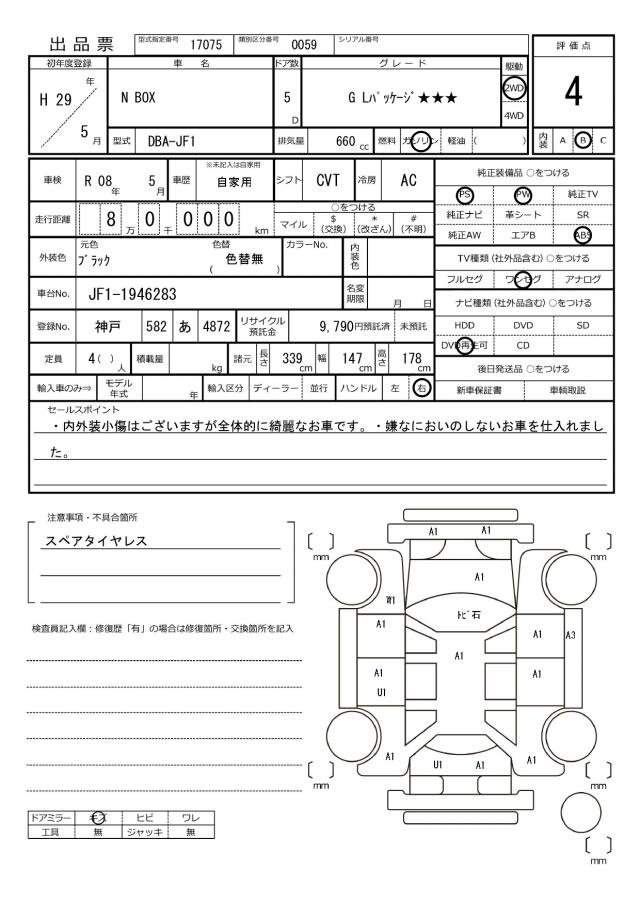 出品票
型式指定番号 17075 類別区分番号 0059 シリアル番号
評価点
4
内装 A B C
初年度登録 車名 ドア数 グレード 駆動
H 29 年 5 月
N BOX
5 D
G Lﾊﾟｯｹｰｼﾞ★★★
2WD
4WD
型式 DBA-JF1 排気量 660 cc 燃料 ガソリン 軽油 ( )
車検 R 08 年 5 月 車歴 ※未記入は自家用 自家用 シフト CVT 冷房 AC
走行距離 8 万 0 千 0 0 0 km
○をつける
マイル $ (交換) * (改ざん) # (不明)
外装色 元色 ﾌﾞﾗｯｸ 色替 ( 色替無 ) カラーNo. 内装色
車台No. JF1-1946283 名変期限 月 日
登録No. 神戸 582 あ 4872 リサイクル預託金 9,790円預託済 未預託
定員 4 ( ) 人 積載量 kg 諸元 長さ 339 cm 幅 147 cm 高さ 178 cm
輸入車のみ⇒ モデル年式 年 輸入区分 ディーラー 並行 ハンドル 左 右
純正装備品 ○をつける
PS PW 純正TV
純正ナビ 革シート SR
純正AW エアB ABS
TV種類 (社外品含む) ○をつける
フルセグ ワンセグ アナログ
ナビ種類 (社外品含む) ○をつける
HDD DVD SD
DVD再生可 CD
後日発送品 ○をつける
新車保証書 車輌取説
セールスポイント
・内外装小傷はございますが全体的に綺麗なお車です。・嫌なにおいのしないお車を仕入れまし
た。
注意事項・不具合箇所
スペアタイヤレス
検査員記入欄：修復歴「有」の場合は修復箇所・交換箇所を記入
ドアミラー キズ ヒビ ワレ
工具 無 ジャッキ 無
A1 A1
mm mm
A1
W1
ﾄﾋﾞ石
A1 A1 A3
A1
A1 A1
U1
A1 U1 A1 A1
mm mm
mm